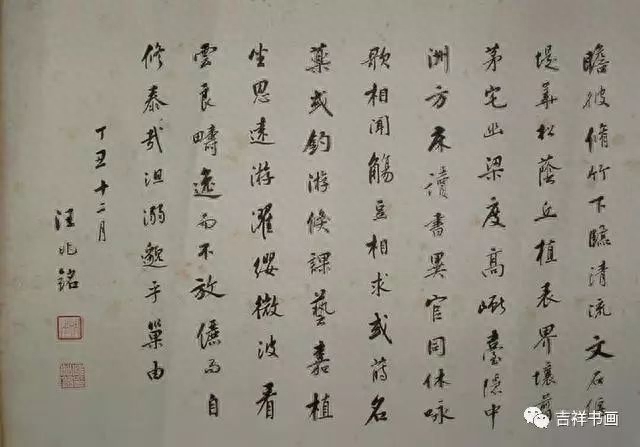 瞻彼脩竹下臨清流文石偃
堤華松蔭丘植表界壤剪
茅宅幽梁度高臺隱中
洲方床讀書異官同休咏
歌相聞觴豆相求或蒔名
藥或釣游倏課藝嘉植
坐思遠游濯纓微波看
雲良疇逸而不放儉而自
修泰哉沮溺邈乎巢由
丁丑十二月
汪兆銘
吉祥书画